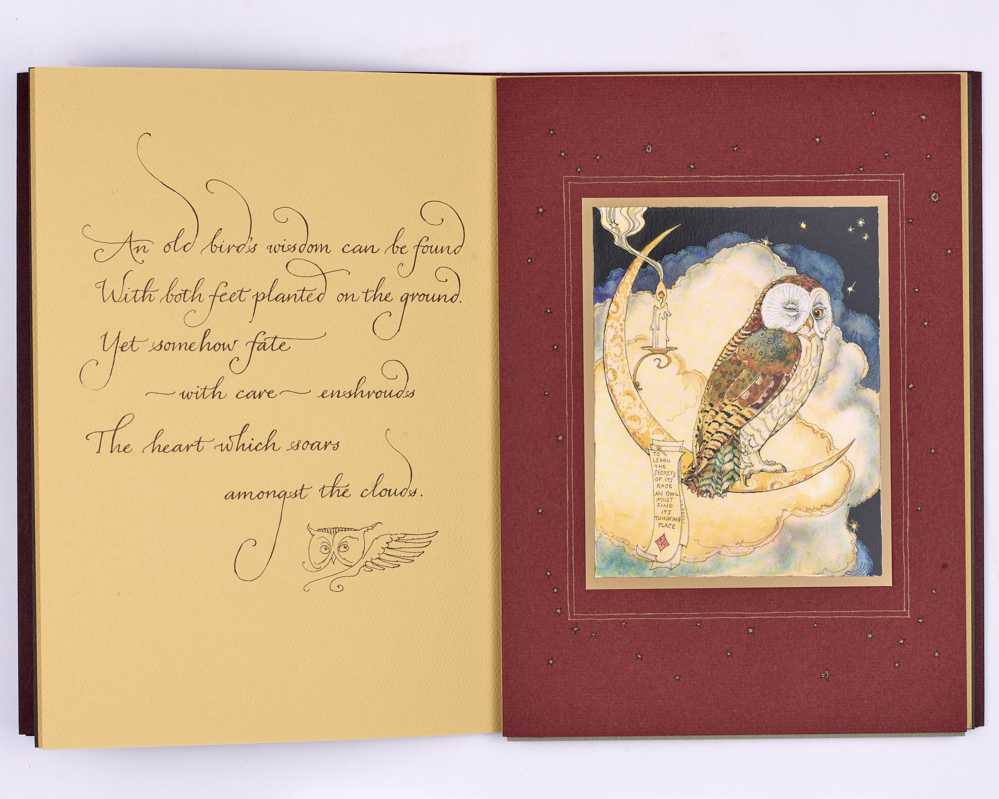 An old bird's wisdom can be found
With both feet planted on the ground.
Yet somehow fate
~with care~ enshrouds
The heart which soars
amongst the clouds.
TO
LEARN
THE
SECRETS
OF ITS
RACE
AN OWL
MUST
FIND
ITS
THINKING
PLACE